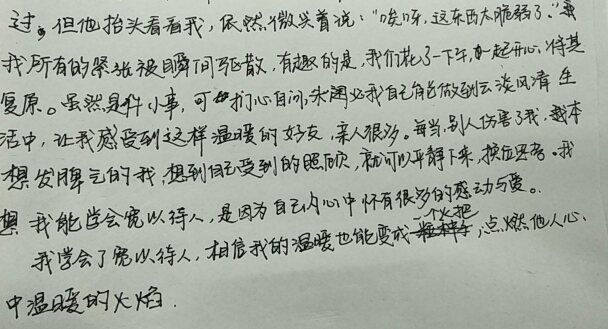 过。但他抬头看看我，依然微笑着说："唉呀，这东西太脆弱了。"
我所有的紧张被瞬间驱散，有趣的是，我们花了一下午，一起开心，将其
复原。虽然是件小事，可扪心自问，未必我自己能做到云淡风清 生
活中，让我感受到这样温暖的好友，亲人很多。每当别人伤害了我，本
想发脾气的我，想到自己受到的照顾，就可以平静下来，换位思考。我
想 我能学会宽以待人，是因为自己内心中怀有很多的感动与爱。
我学会了宽以待人，相信我的温暖也能变成一个火把，点燃他人心
中温暖的火焰.